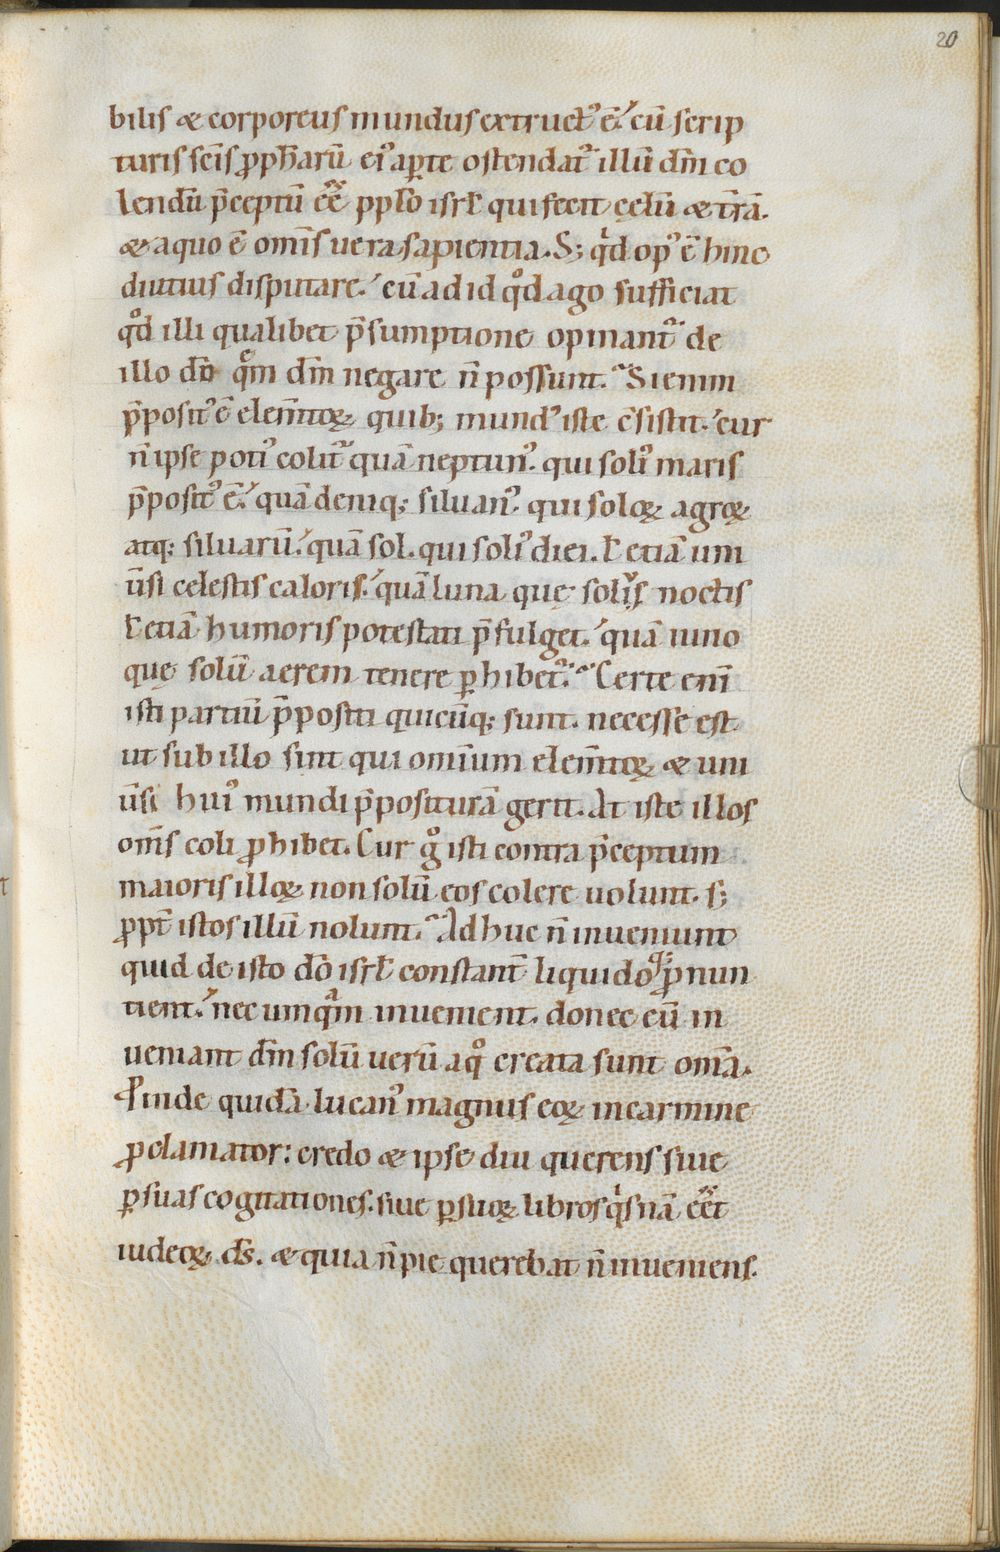 20
bilis & corporeus mundus extruct᾽ ē. cū scrip
turis scīs ꝓph̄arū ei᾽ aꝑte ostendat᾽ illū dn̄m co
lendū p̄ceptū eē̄ pplo isrl̄ qui fecit cęlū & t̄rā.
& a quo ē omīs uera sapientia. S; qd op᾽ ē hinc
diutius disputare. cū ad id qd ago sufficiat
qd illi qualibet p̄sumptione opinant᾽ de
illo dō quē dm̄ negare n̄ possunt. Si enim
p̄posit᾽ ē elem̄toꝝ quib; mund᾽ iste c̄sistit. cur
n̄ ipse poti᾽ colit᾽ quā neptun᾽. qui soli᾽ maris
p̄posit᾽ ē. quā deniq; siluan᾽. qui soloꝝ agroꝝ
atq; siluarū. quā sol. qui soli᾽ diei. ł etiā uni
ūsi celestis caloris. quā luna quę soli᾽ noctis
ł etiā humoris potestati p̄fulget. quā iuno
quę solū aerem tenere ꝑhibet᾽. Certe enī
isti partiū p̄positi quicūq; sunt. necesse est
ut sub illo sint qui omnium elem̄toꝝ & uni
ūsi hui᾽ mundi p̄positurā gerit. At iste illos
om̄s coli ꝓhibet. Cur gͦ isti contra p̄ceptum
maioris illoꝝ non solū eos colere uolunt. s;
ꝓpt̄ istos illū nolunt. Adhuc n̄ inueniunt
quid de isto dō isrl̄ constant̄ liquidoq; ꝓnun
tient. nec umqͣm inuenient. donec eū in
ueniant dm̄ solū uerū a qͦ creata sunt om̄a.
Proinde quidā lucan᾽ magnus eoꝝ in carmine
ꝓclamator: credo & ipse diu querens siue
ꝑ suas cogitationes. siue ꝑ suoꝝ libros qͥsnā eēt
iudeoꝝ ds̄. & quia n̄ pie querebat n̄ inueniens.